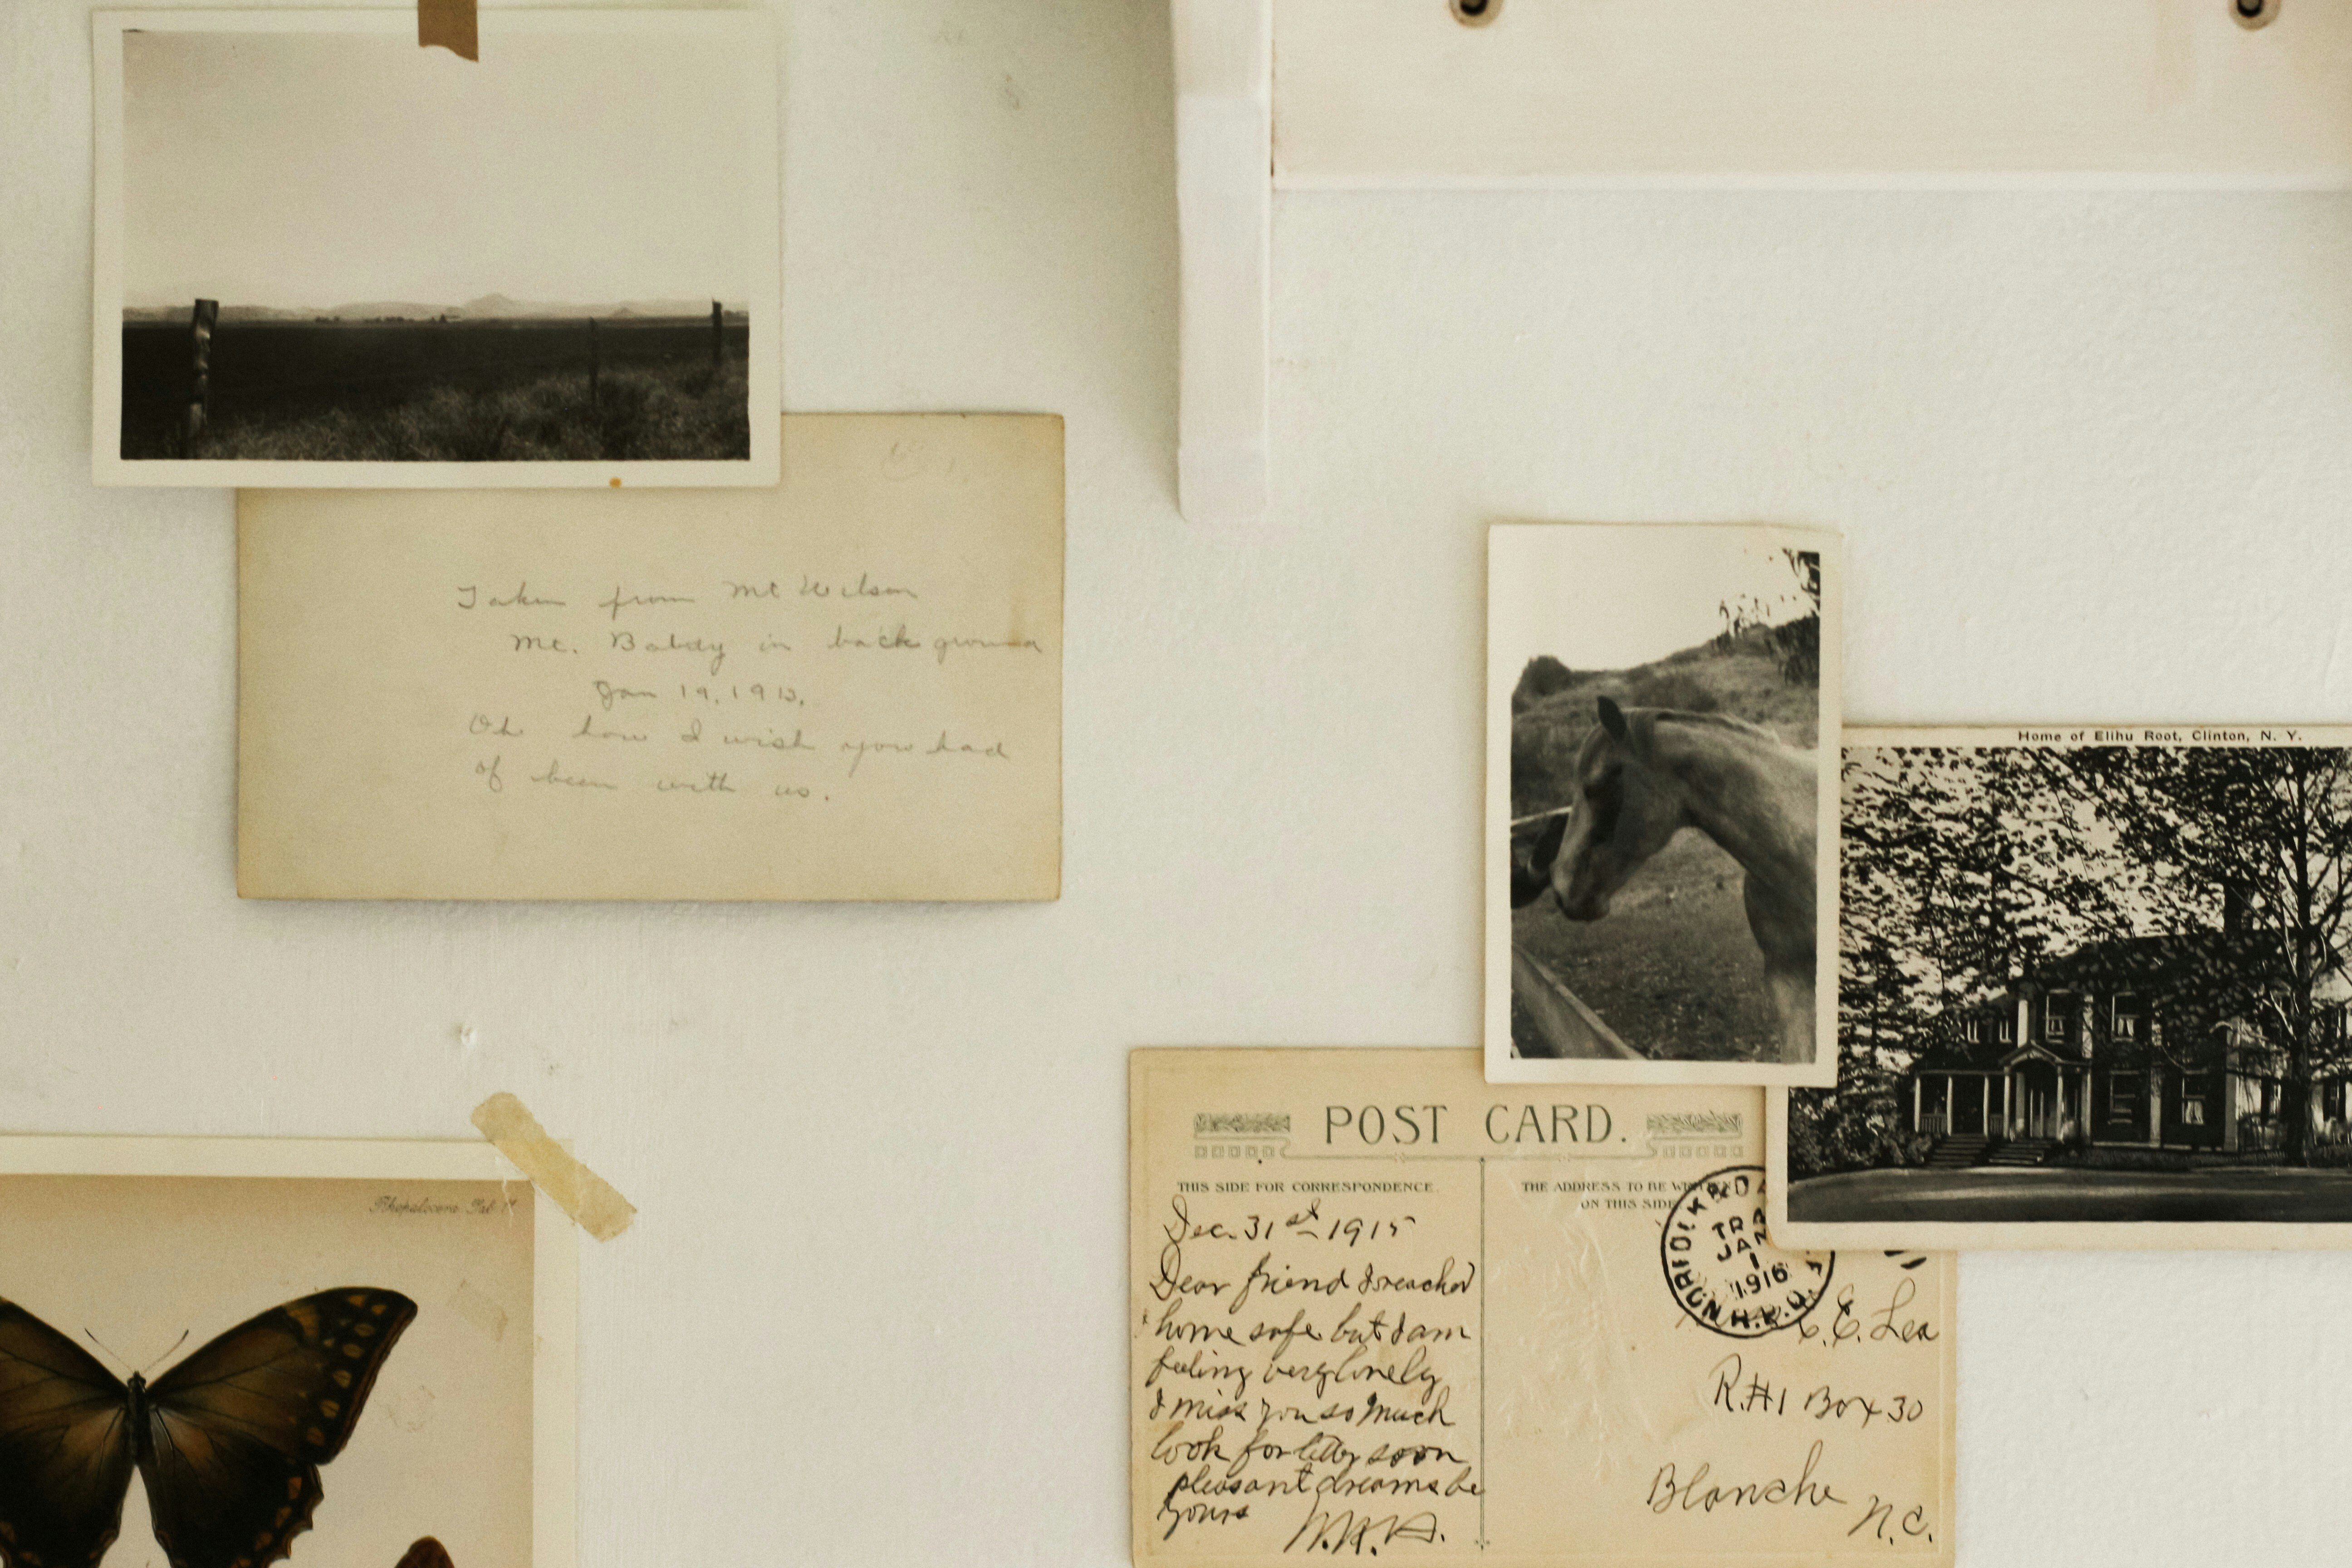 Taken from Mt Wilson
Mt. Baldy in back ground
Jan 19, 1913.
Oh how I wish you had
of been with us.
Home of Elihu Root, Clinton, N. Y.
POST CARD.
THIS SIDE FOR CORRESPONDENCE.
THE ADDRESS TO BE
ON THIS SIDE
Dec. 31st 1915
Dear friend I reached
home safe but I am
feeling very lonely
I miss you so much
look for letter soon
pleasant dreams be
yours
JAN
1
1916
R.P.O.
C.C. Lea
R.#1 Box 30
Blanche
N.C.
Rhopalocera. Tab